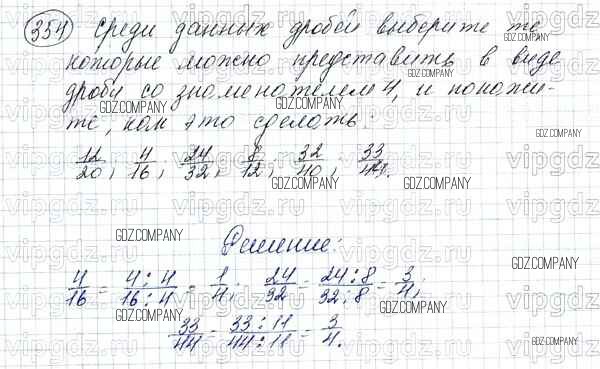 354 Среди данных дробей выберите те,
которые можно представить в виде
дроби со знаменателем 4, и покажи-
те, как это сделать:
12/20, 4/16, 24/32, 8/12, 32/40, 33/44.
Решение:
4/16 = 4:4/16:4 = 1/4; 24/32 = 24:8/32:8 = 3/4;
33/44 = 33:11/44:11 = 3/4.